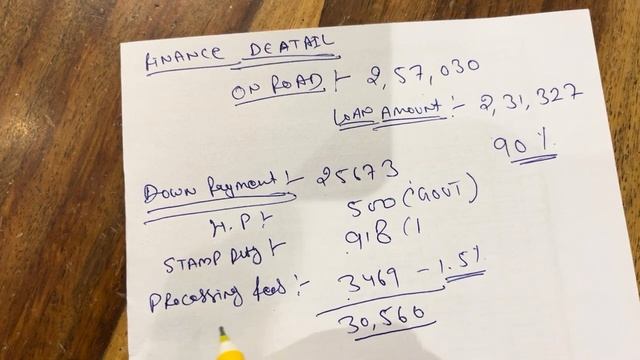 FINANCE DEATAIL
ON ROAD :- 2,57,030
LOAN AMOUNT :- 2,31,327
90 %
Down Payment :- 25673
H.P :- 500 (GOVT)
STAMP Duty :- 918 (
Processing fees :- 3469 - 1.5%
30,560